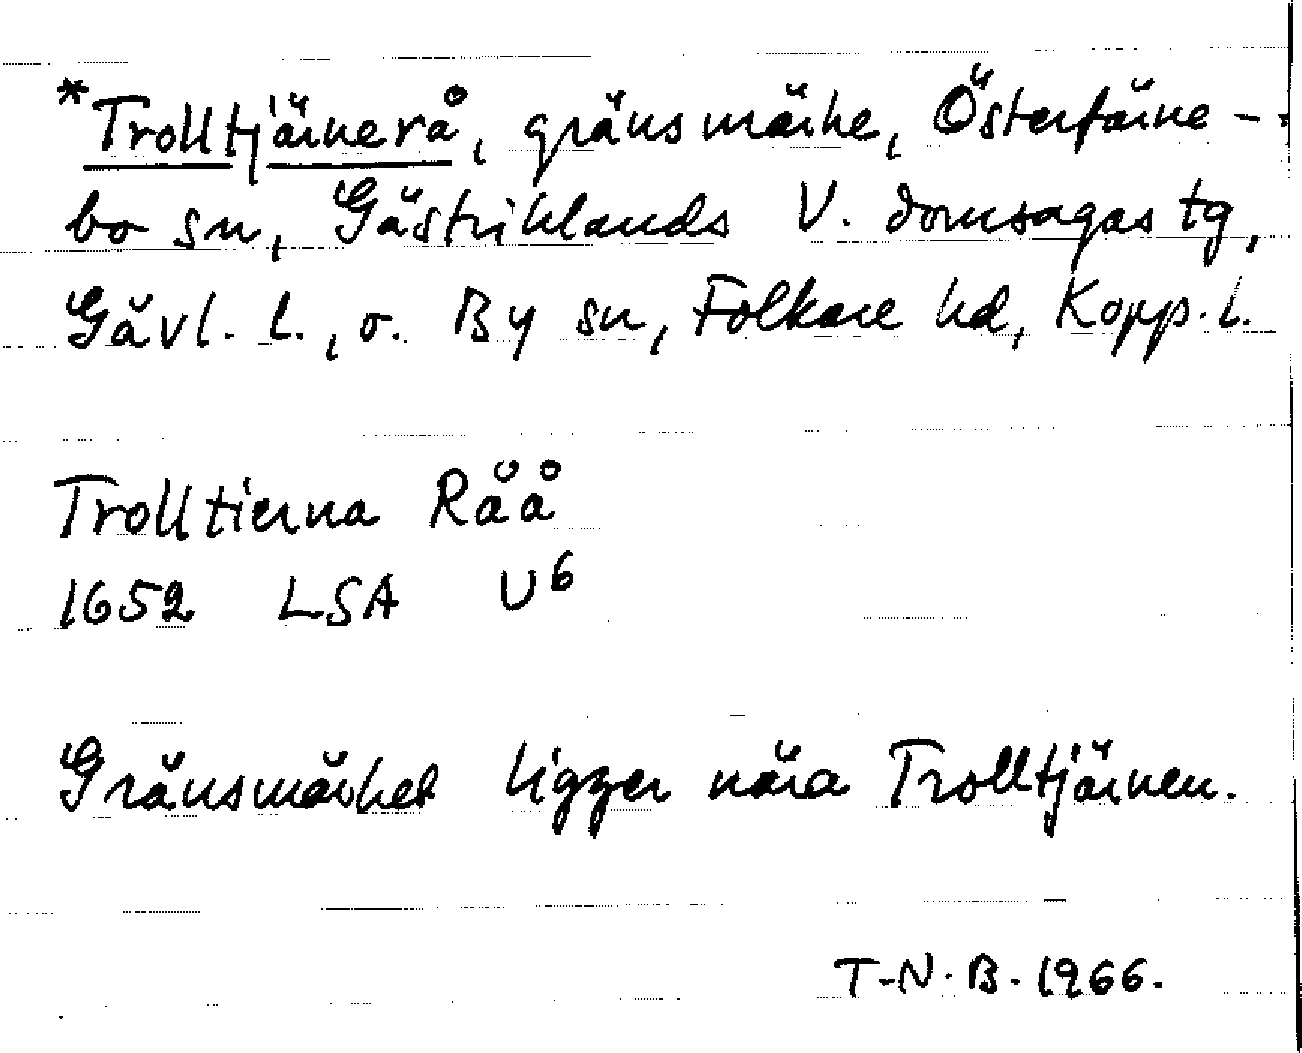 *Trolltjärnerå, gränsmärke, Österfärne-
bo sn, Gästriklands V. domsagas tg,
Gävl. l., o. By sn, Folkare hd, Kopp. l.
Trolltierna Råå
1652 LSA U6
Gränsmärket ligger nära Trolltjärnen.
T-N. B. 1966.